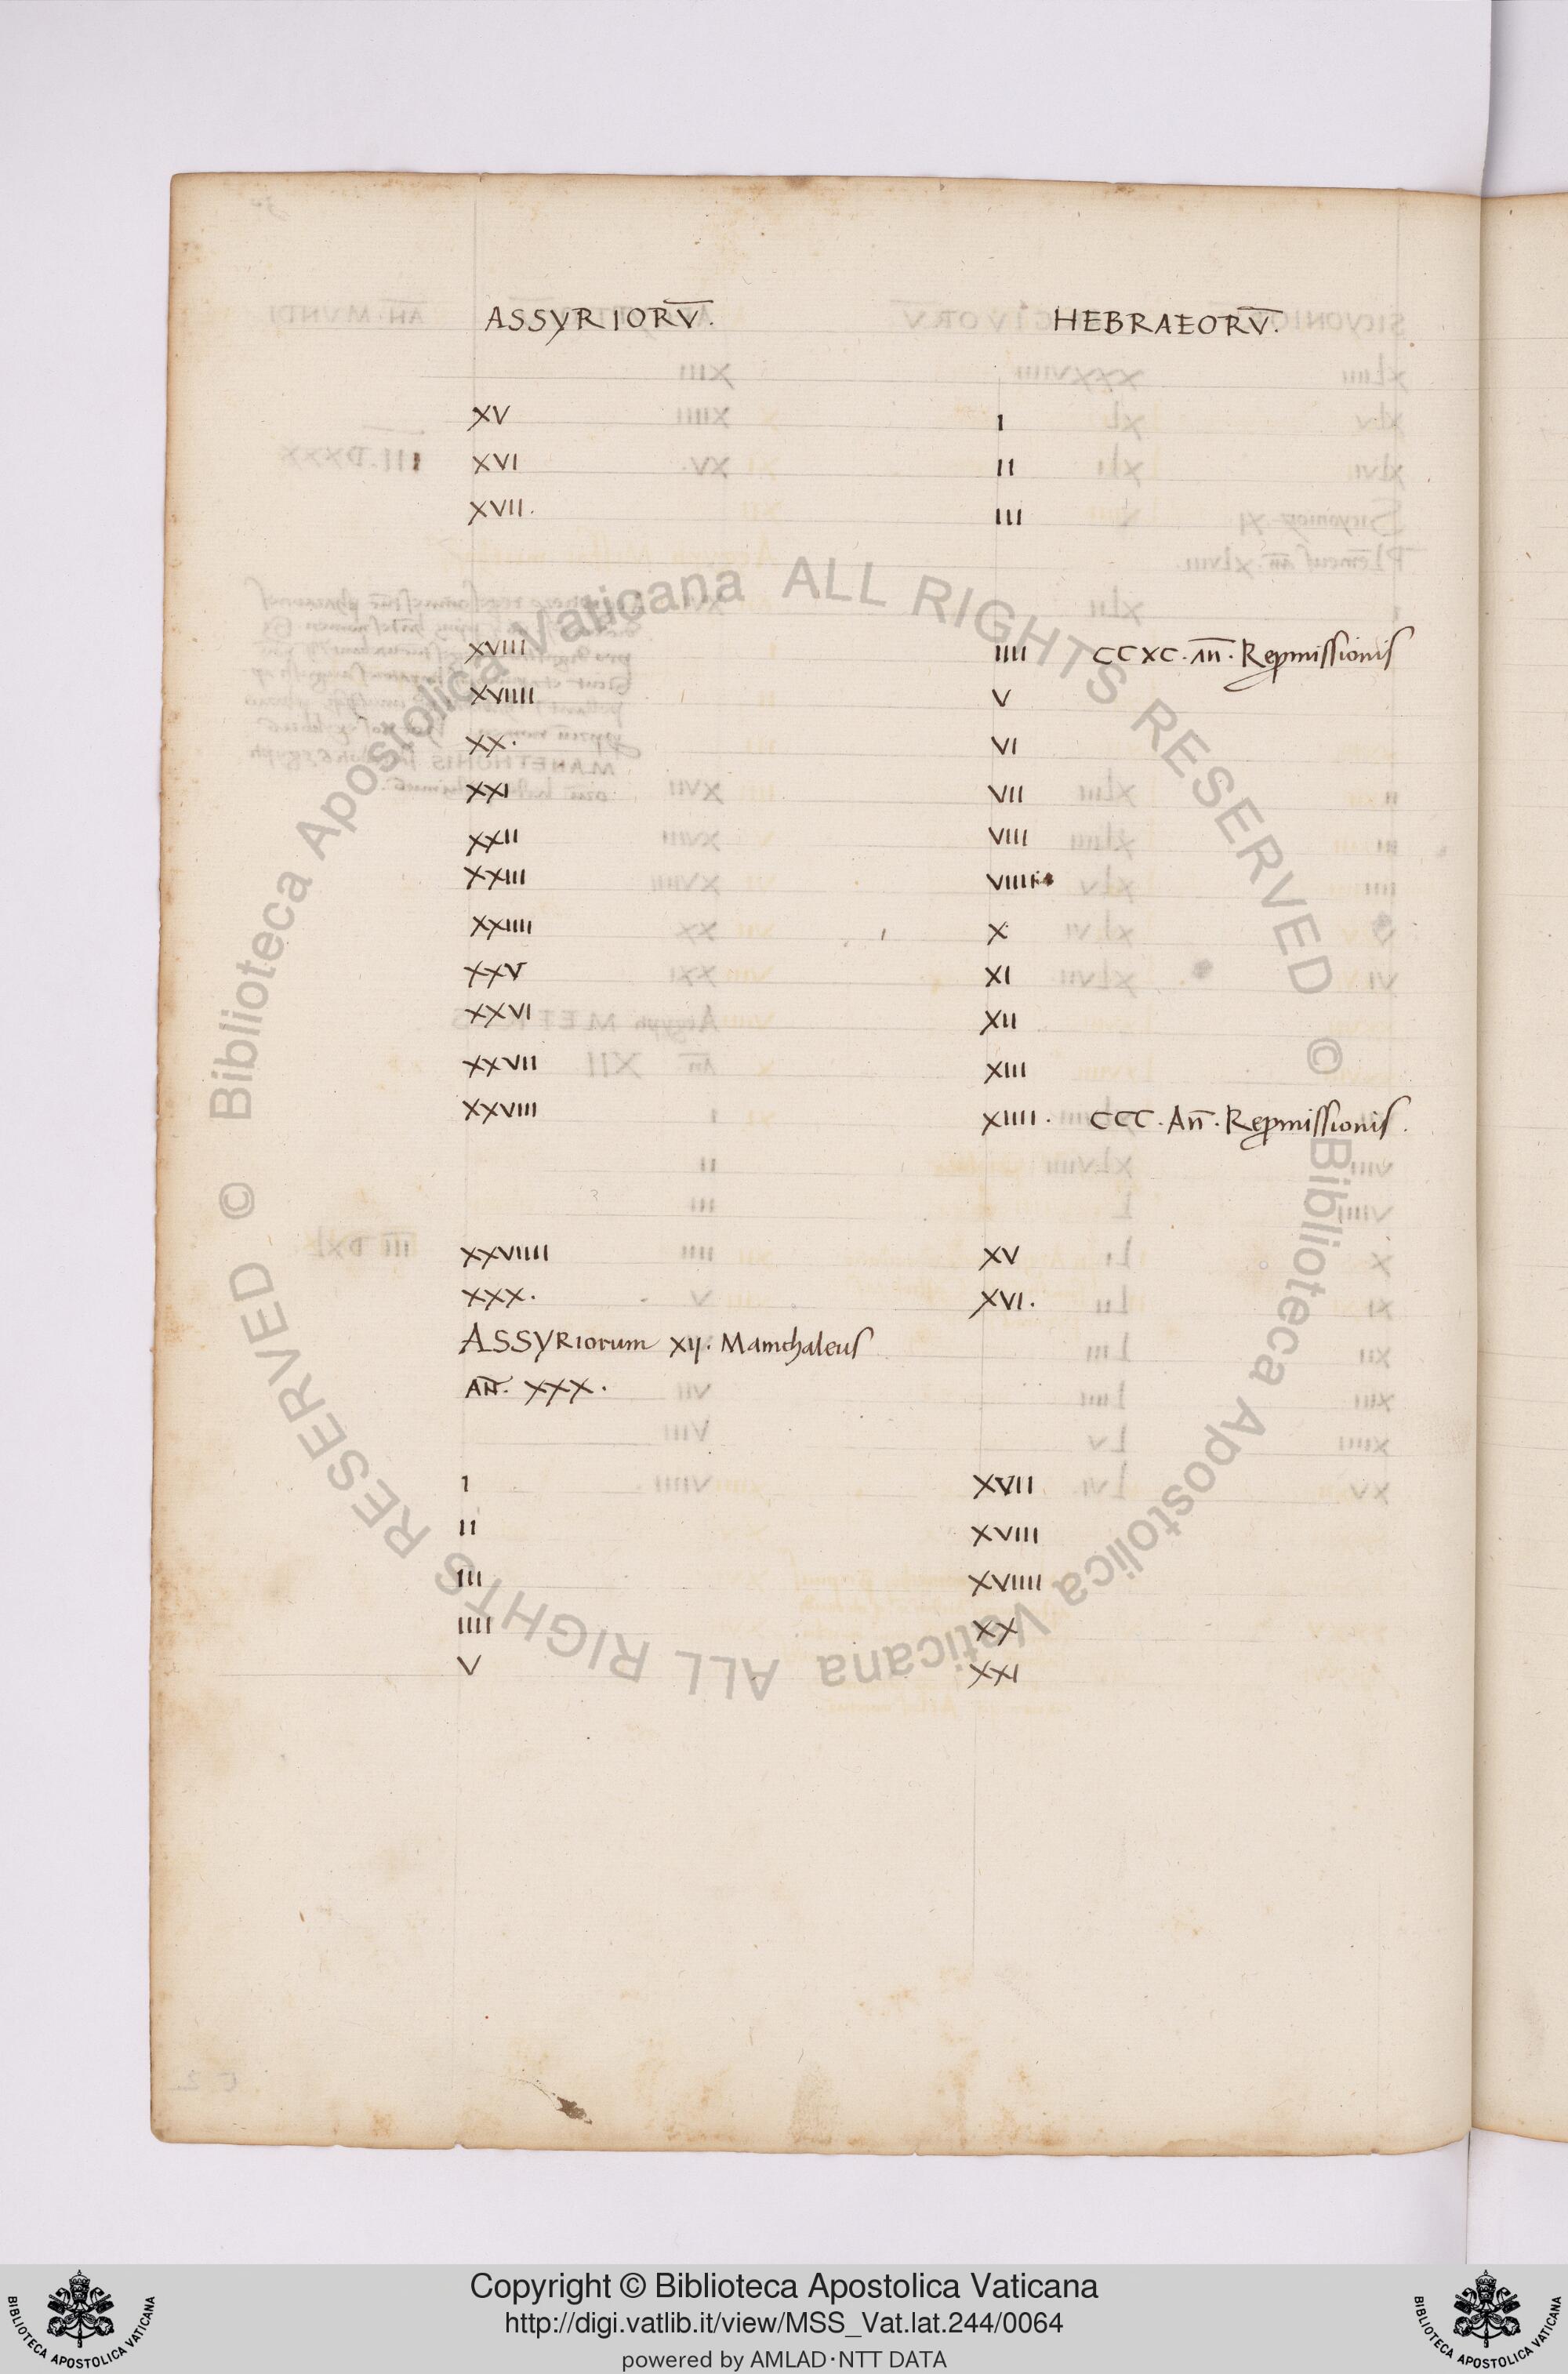 ASSYRIORV̅.	HEBRAEORV̅.
XV	I
XVI	II
XVII.	III
XVIII	IIII	CCXC. an̅. Repmissionis
XVIIII	V
XX.	VI
XXI	VII
XXII	VIII
XXIII	VIIII
XXIIII	X
XXV	XI
XXVI	XII
XXVII	XIII
XXVIII	XIIII.	CCC. An̅. Repmissionis.
XXVIIII	XV
XXX.	XVI.
ASSYRIorum XIJ. Mamthaleus
AN̅. XXX.
I	XVII
II	XVIII
III	XVIIII
IIII	XX
V	XXI
© Biblioteca Apostolica Vaticana ALL RIGHTS RESERVED
© Biblioteca Apostolica Vaticana ALL RIGHTS RESERVED
Copyright © Biblioteca Apostolica Vaticana
http://digi.vatlib.it/view/MSS_Vat.lat.244/0064
powered by AMLAD·NTT DATA
BIBLIOTECA APOSTOLICA VATICANA
BIBLIOTECA APOSTOLICA VATICANA